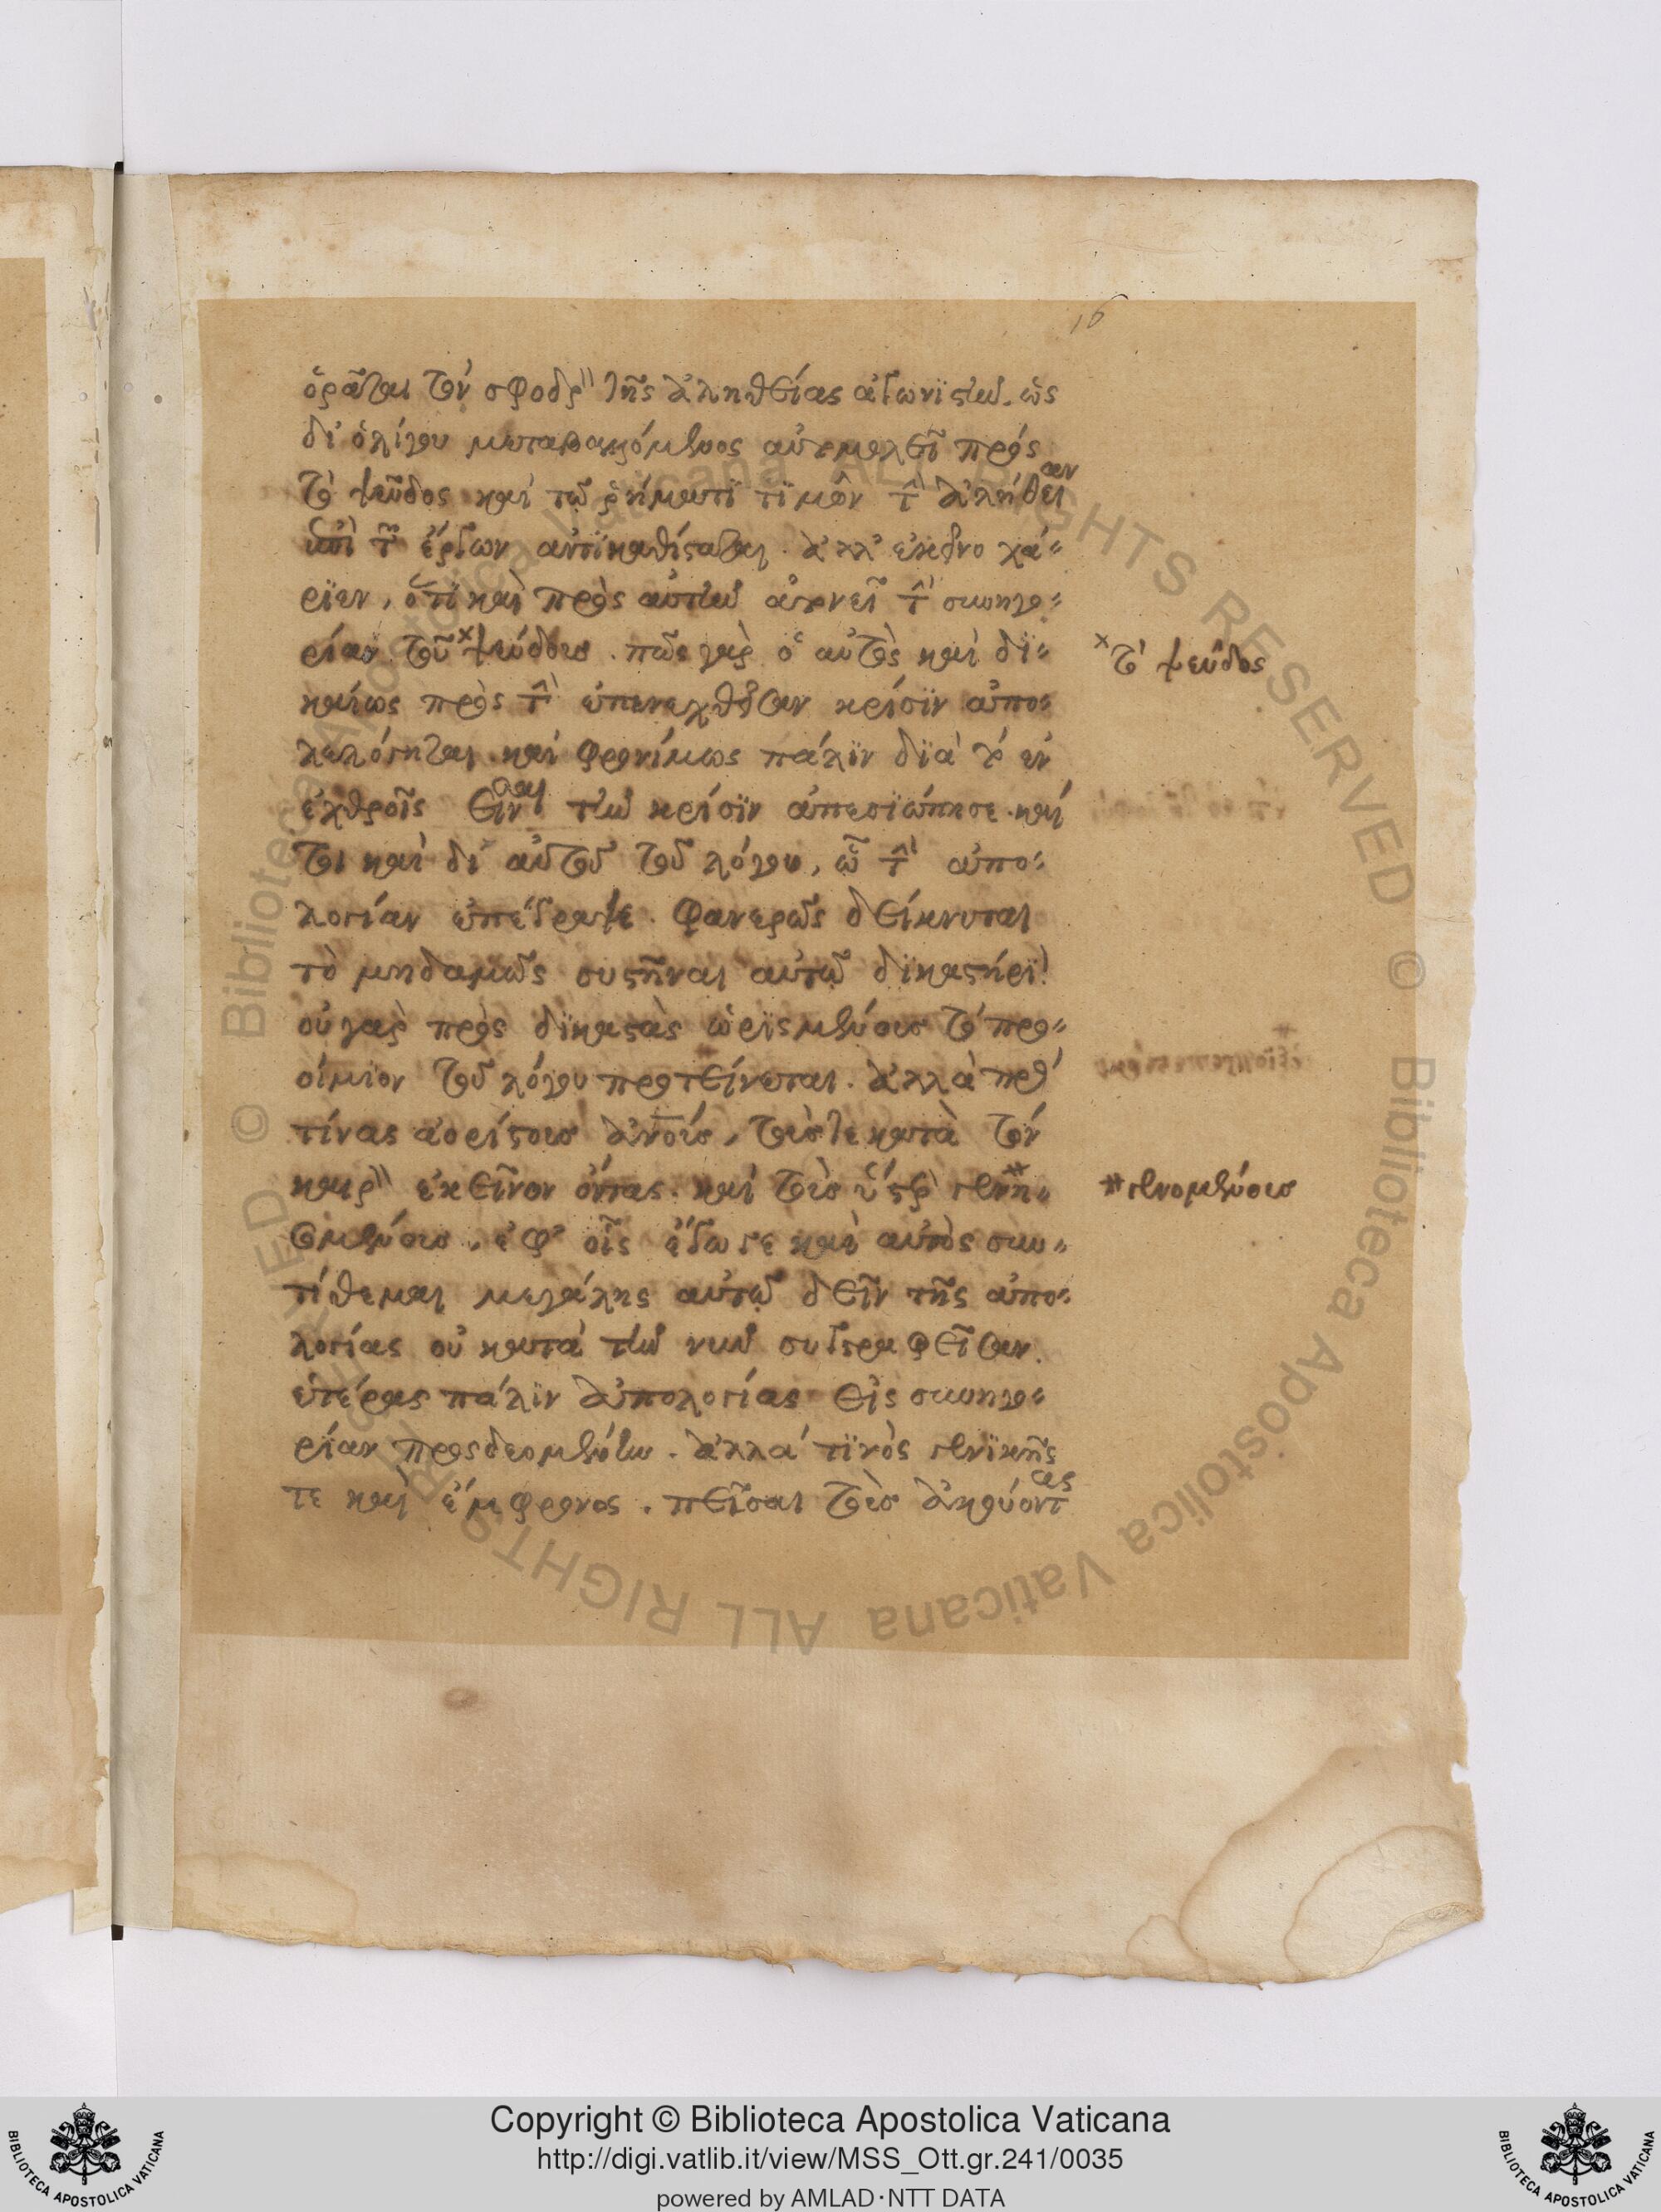 16
ὁρᾶται τὸν σφοδρ" τῆς ἀληθείας ἀγωνιστήν. ὡς
δι' ὀλίγου μεταβαλλόμενος αὐτομολεῖ πρὸς
τὸ ψεῦδος καὶ τῶ ῥήματι τιμῶν τὴν ἀλήθειαν
διὰ τῶν ἔργων ἀντικαθίσταται. ἀλλ' ἐκεῖνο χά-
ριεν, ὅτι καὶ πρὸς αὐτὴν ἀγνοεῖ τὴν συνηγο-
ρίαν τοῦ × ψεύδους. πῶς γὰρ ὁ αὐτὸς καὶ δι-
× τὸ ψεῦδος
καίως πρὸς τὴν ἐπενεχθεῖσαν κρίσιν ἀπο-
λελόγηται καὶ φρονίμως πάλιν διὰ τὸ ἐν
ἐχθροῖς εἶναι τὴν κρίσιν ἀπεσιώπησε. καί
τοι καὶ δι' αὐτοῦ τοῦ λόγου, ὧ τὴν ἀπο-
λογίαν ἐπέγραψε. φανερῶς δείκνυται
τὸ μηδαμῶς συστῆναι αὐτῶ δικαστήρι
οὐ γὰρ πρὸς δικαστὰς ὡρισμένους τὸ προ-
οίμιον τοῦ λόγου προτείνεται. ἀλλὰ πρὸς
τινας ἀορίστους ἀνους, τούς τε κατὰ τὸν
καιρ" ἐκεῖνον ὄντας. καὶ τοὺς ὕστερον γενη-
# γενομένους
σομένους. ἐφ' οἷς ἔγωγε καὶ αὐτὸς συν-
τίθεμαι μεγάλης αὐτῶ δεῖν τῆς ἀπο-
λογίας οὐ κατὰ τὴν νῦν συγγραφεῖσαν.
ἑτέρας πάλιν ἀπολογίας εἰς συνηγο-
ρίαν προσδεομένην. ἀλλά τινος γενικῆς
τε καὶ ἔμφρονος. πεῖσαι τοὺς ἀκούοντας
Copyright © Biblioteca Apostolica Vaticana
http://digi.vatlib.it/view/MSS_Ott.gr.241/0035
powered by AMLAD·NTT DATA
BIBLIOTECA APOSTOLICA VATICANA
BIBLIOTECA APOSTOLICA VATICANA